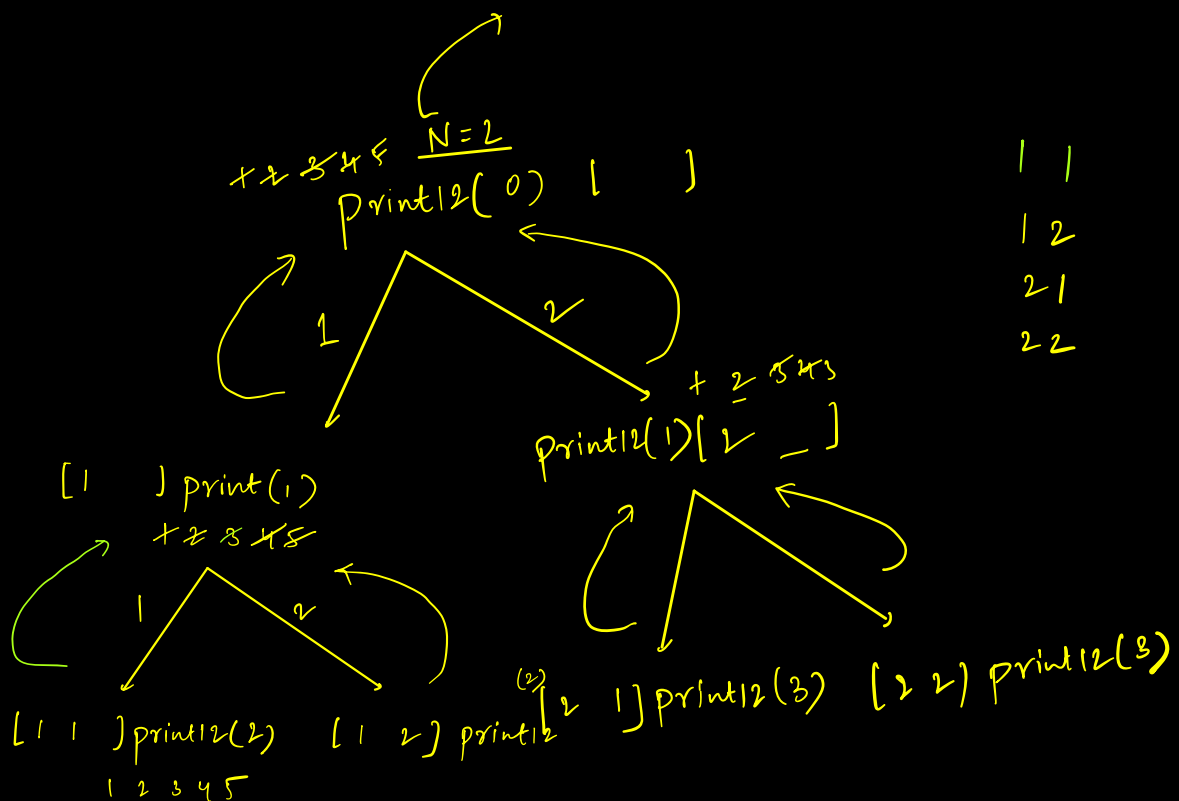 N=2
1 2 3 4 5
print12(0) [ ]
1 1
1 2
2 1
2 2
1
2
1 2 3 4 5
print12(1)[2 _ ]
[1 ] print(1)
1 2 3 4 5
1
2
[1 1 ] print12(2)
1 2 3 4 5
[1 2] print12 (2)
[2 1] print12(3)
[2 2) print12(3)